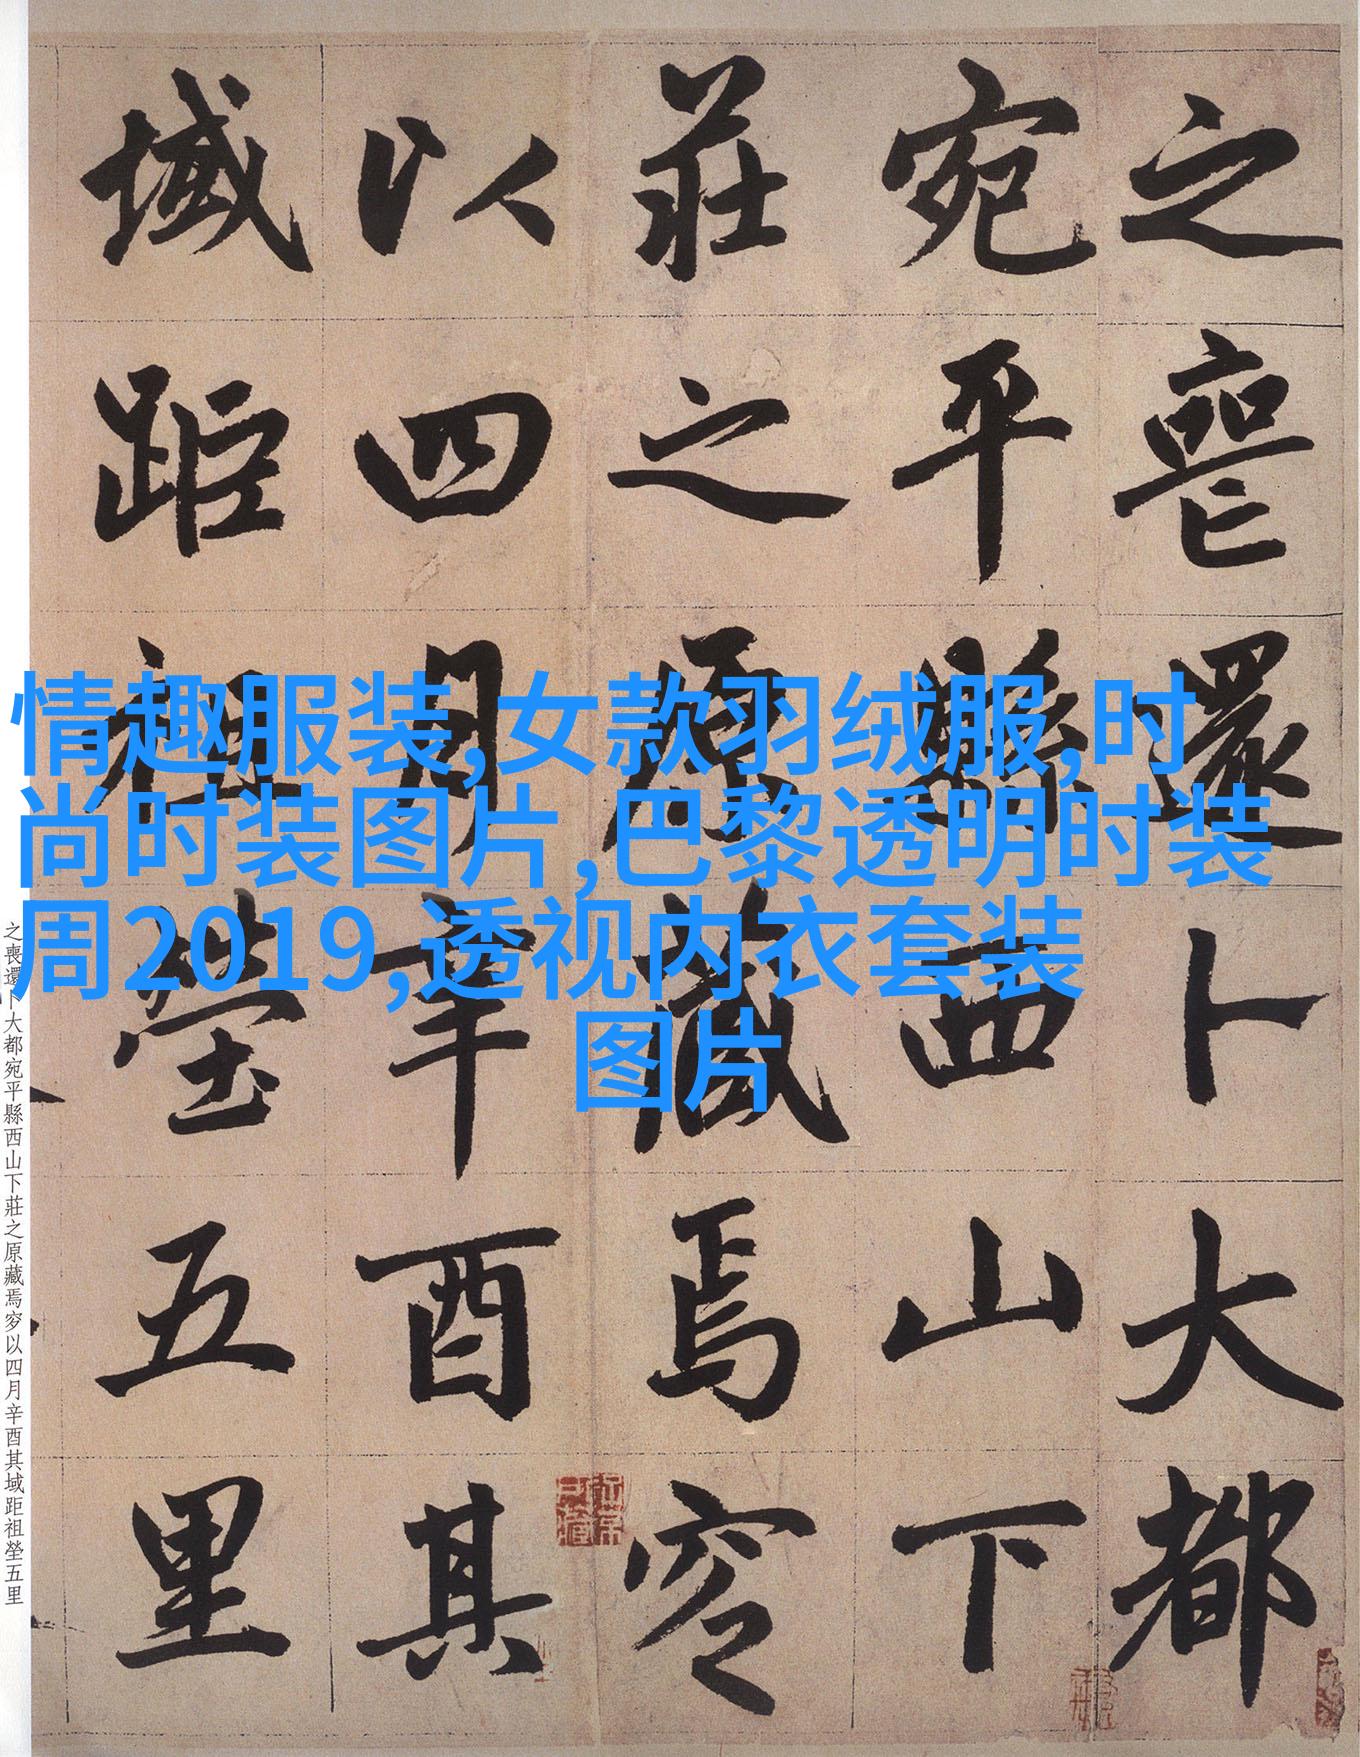 之喪還卜大都
宛平縣西山下
莊之原藏焉窆
以四月辛酉其
域距祖塋五里
情趣服装,女款羽绒服,时
尚时装图片,巴黎透明时装
周2019,透视内衣套装
图片
之喪還卜大都宛平縣西山下莊之原藏焉窆以四月辛酉其域距祖塋五里